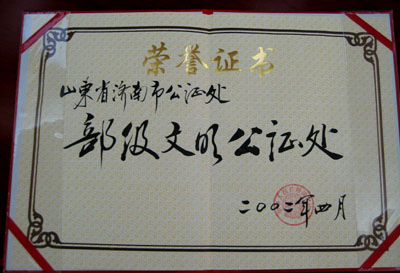 荣誉证书
山东省济南市公证处
部级文明公证处
二〇〇二年四月